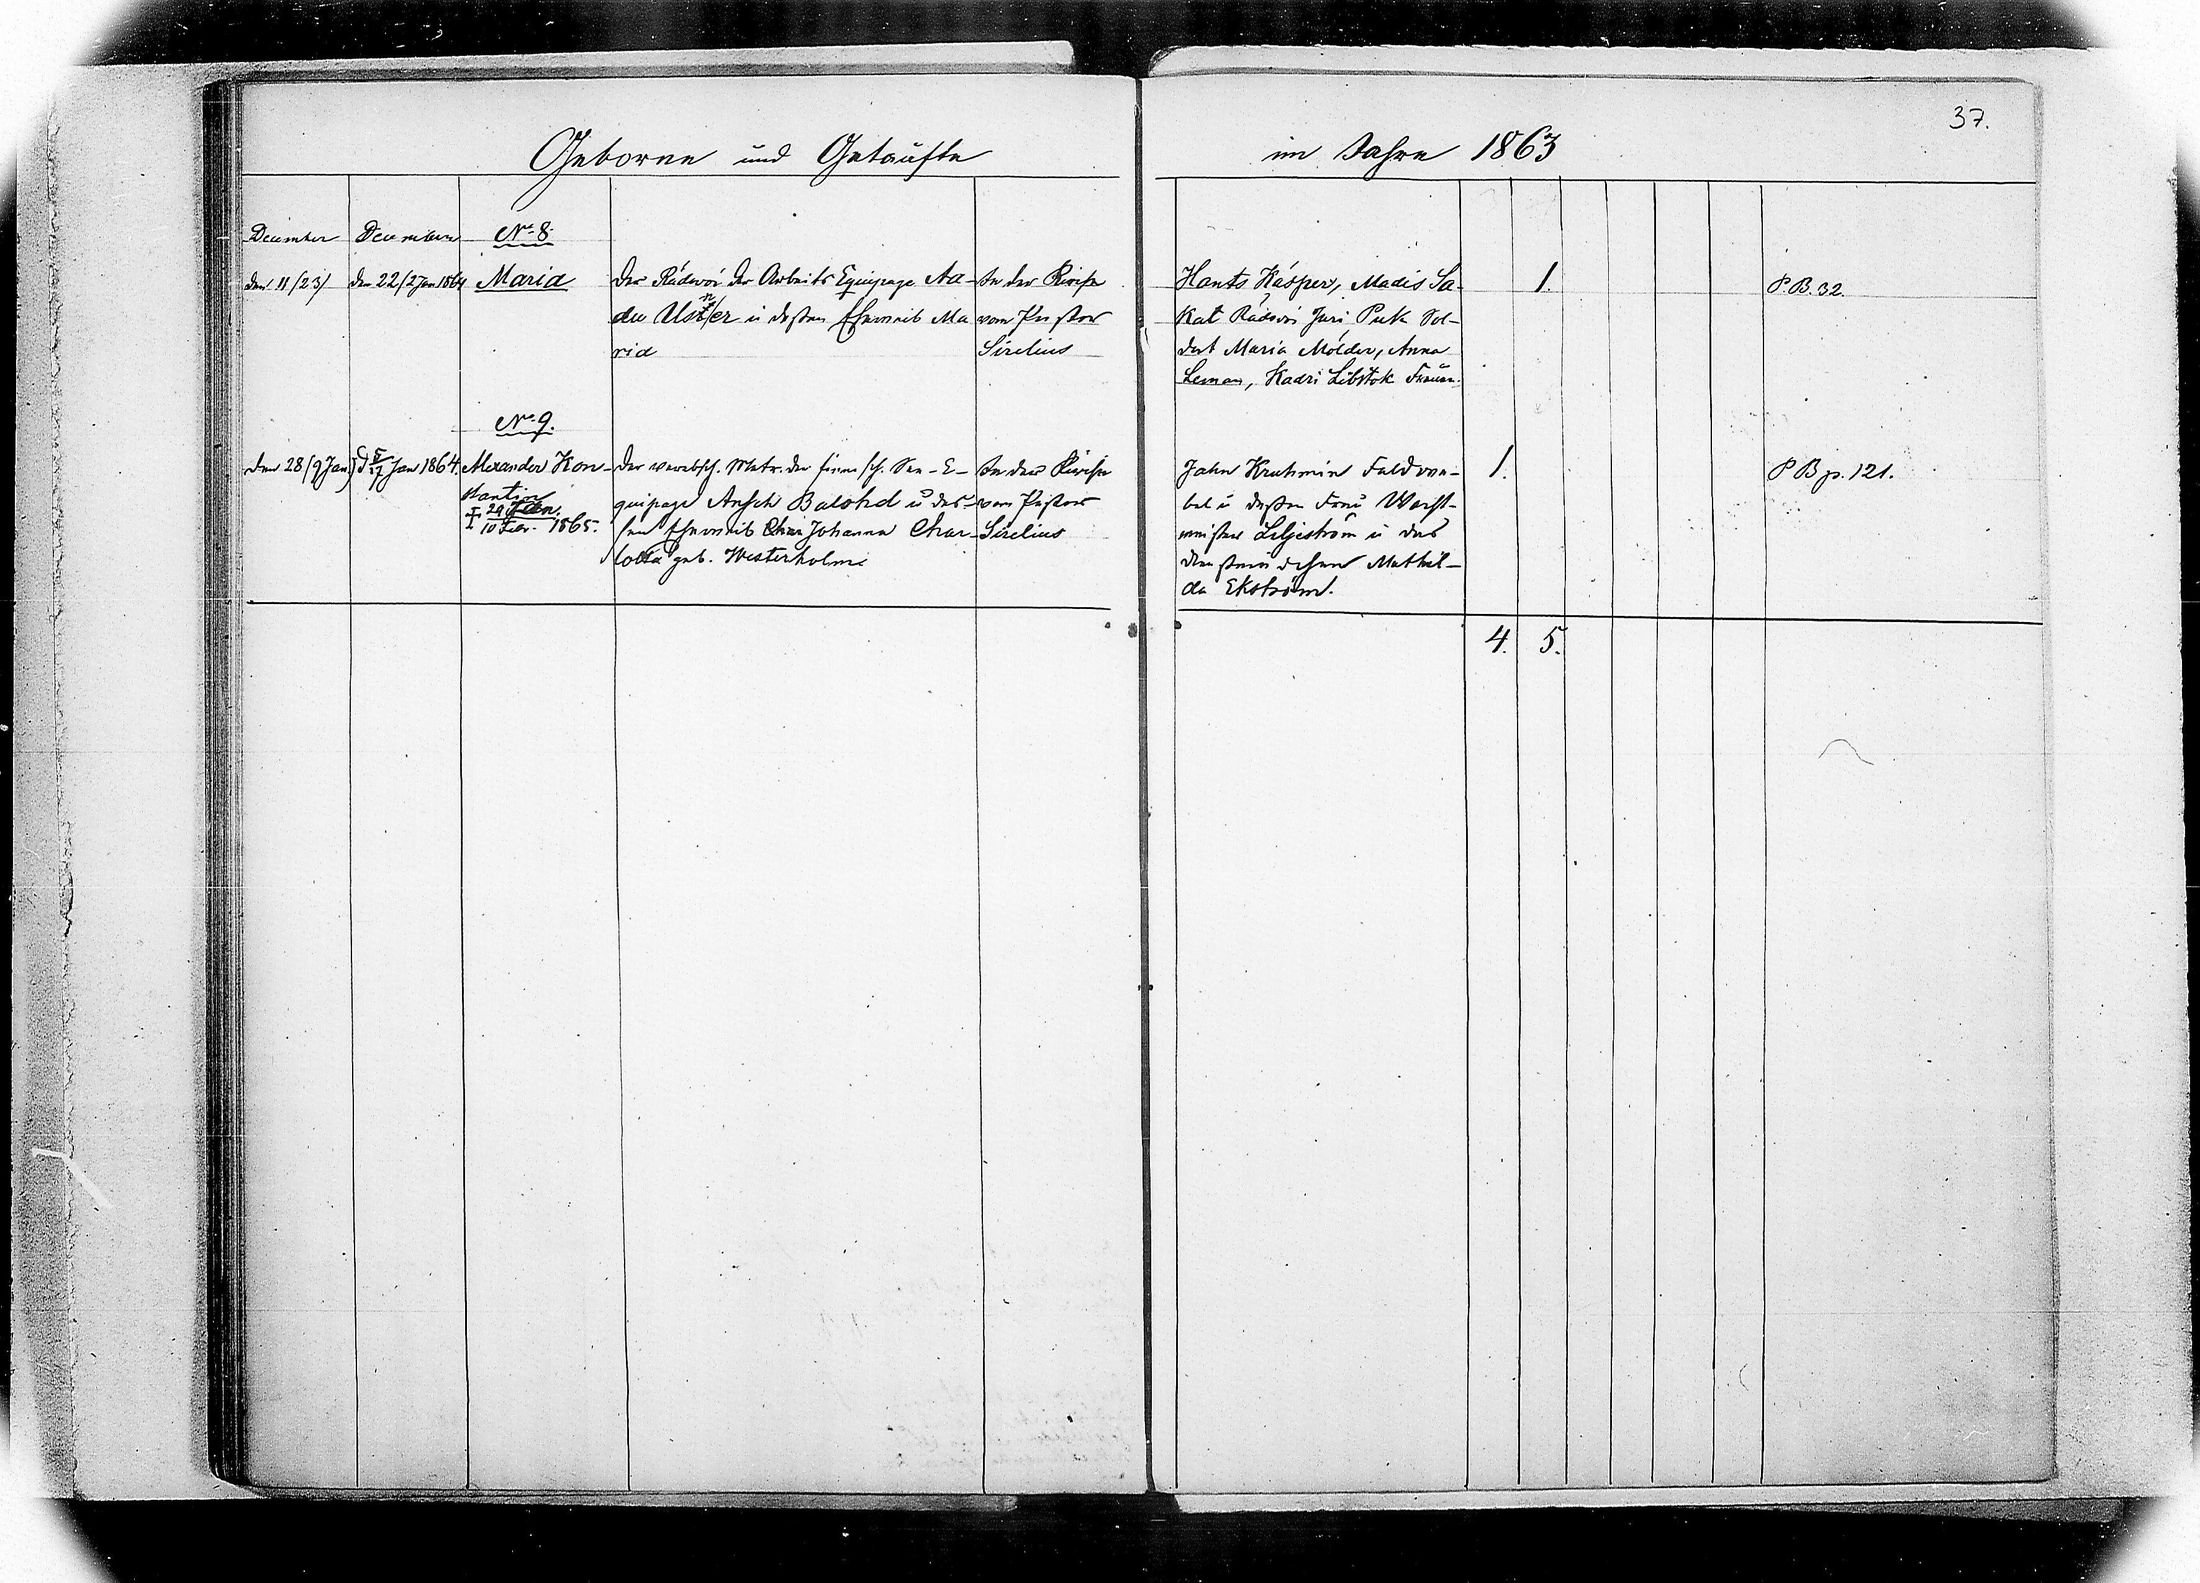 37.
Geborne und Getaufte im Jahre 1863
December December No 8.
den 11 (23) den 22 (2 Jan 1864 Maria
Der Rádwoi der Arbeits Equipage Aa-
du Uls er u dessen Eheweib Ma
ria
In der Kirche
vom Pastor
Sirelius
Hants Käsper, Madis Sa-
kat Rádwoi Juri Puk Sol-
dat Maria Mölder, Anna
Leman, Kadri Libstok Frauen.
1.
P. B. 32.
No 9.
den 28 (9 Jan) d 5/17 Jan 1864. Alexander Kon-
stantin
† 29 Jan. / 10 Febr. 1865.
Der verabsch. Matr. der finnisch. See-E-
quipage Ansch Balohd u des-
sen Eheweib Johanna Char-
lotta geb. Westerholm
In der Kirche
vom Pastor
Sirelius
Jahn Kruhmin Feldwe-
bel u dessen Frau Wacht-
meister Liljeström u das
Dienstmädchen Mathil-
da Ekström.
1.
P B p. 121.
4. 5.